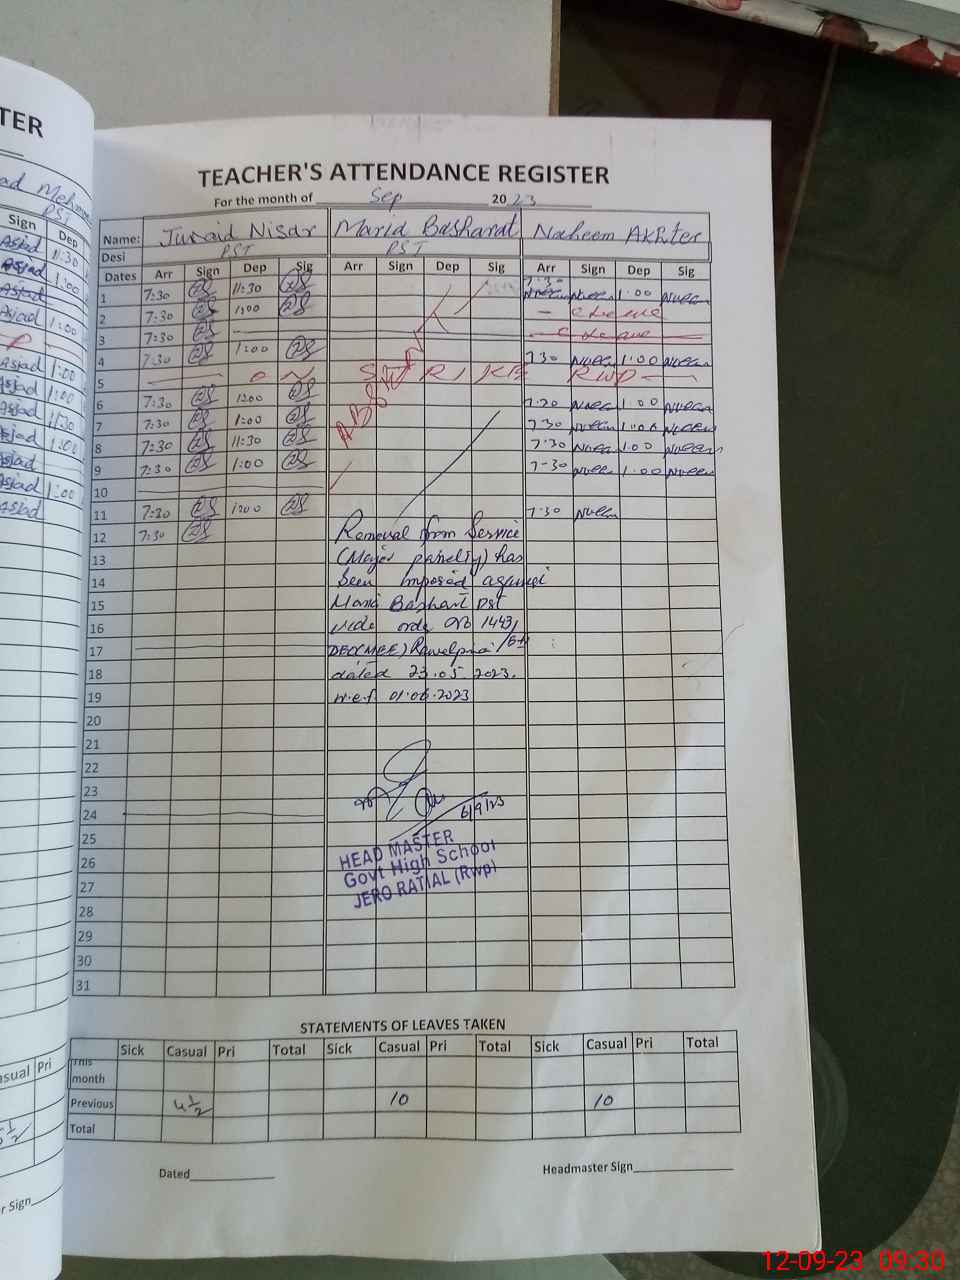 TER
TEACHER'S ATTENDANCE REGISTER
For the month of Sep 2023
Name: Junaid Nisar Maria Basharat Naheem Akhter
Desi PST PST
Dates Arr Sign Dep Sig Arr Sign Dep Sig Arr Sign Dep Sig
1 7:30 11:30 7:30 1:00
2 7:30 1:00 — C Leave
3 7:30 C Leave
4 7:30 1:00 7 30 1:00
5 RWP
6 7:30 1:00
7 7:30 1:00 7 30 1:00
8 7:30 11:30 7:30 1:00
9 7:30 1:00 7-30 1:00
10
11 7:30 1:00 7:30
12 7:30
ABSENT
Removal from Service
(Major panelty) has
been imposed against
Maria Basharat PST
vide order No 1443/
DEO(MEE) Rawalpindi
dated 23.05.2023.
w.e.f 01.06.2023
13
14
15
16
17
18
19
20
21
22
23
24
25
26
27
28
29
30
31
6/9/23
HEAD MASTER
Govt High School
JERO RATIAL (Rwp)
STATEMENTS OF LEAVES TAKEN
Sick Casual Pri Total Sick Casual Pri Total Sick Casual Pri Total
This month
Previous 4½ 10 10
Total
Dated
Headmaster Sign
Sign Dep
Asjad 11:30
Asjad 1:00
Asjad
Asjad 1:00
Asjad 1:00
Asjad 1:00
Asjad 11:30
Asjad 1:00
Asjad
Asjad 1:00
Asjad
asual Pri
r Sign
12-09-23 09:30